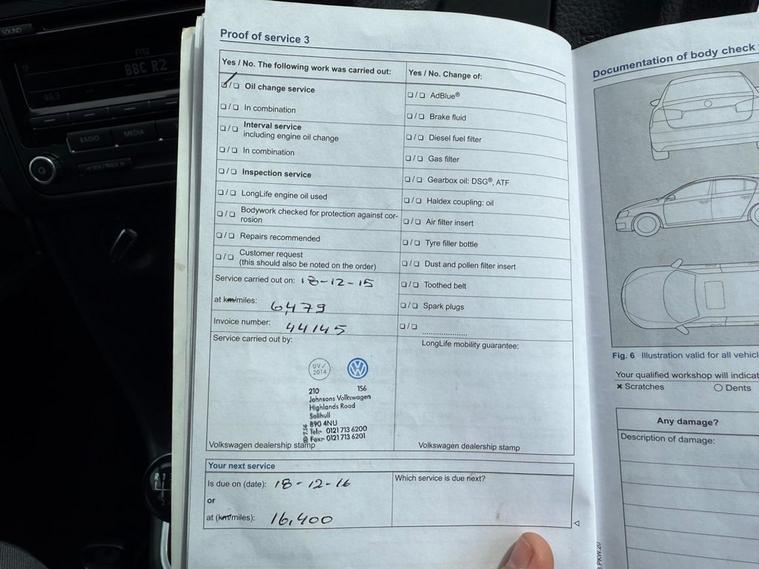 SOUND
BBC R2
RADIO
MEDIA
Proof of service 3
Yes / No. The following work was carried out:
Yes / No. Change of:
❏/❏ Oil change service
❏/❏ In combination
❏/❏ Interval service
including engine oil change
❏/❏ In combination
❏/❏ Inspection service
❏/❏ LongLife engine oil used
❏/❏ Bodywork checked for protection against cor-
rosion
❏/❏ Repairs recommended
❏/❏ Customer request
(this should also be noted on the order)
Service carried out on: 18-12-15
at km/miles: 6479
Invoice number: 44145
Service carried out by:
❏/❏ AdBlue®
❏/❏ Brake fluid
❏/❏ Diesel fuel filter
❏/❏ Gas filter
❏/❏ Gearbox oil: DSG®, ATF
❏/❏ Haldex coupling: oil
❏/❏ Air filter insert
❏/❏ Tyre filler bottle
❏/❏ Dust and pollen filter insert
❏/❏ Toothed belt
❏/❏ Spark plugs
❏/❏ ......................
LongLife mobility guarantee:
UV/
2014
210 156
Johnsons Volkswagen
Highlands Road
Solihull
B90 4NU
Tel:- 0121 713 6200
Fax:- 0121 713 6201
Volkswagen dealership stamp
Volkswagen dealership stamp
Your next service
Is due on (date): 18-12-16
or
at (km/miles): 16,400
Which service is due next?
Documentation of body check
Fig. 6 Illustration valid for all vehicl
Your qualified workshop will indicat
✖ Scratches
○ Dents
Any damage?
Description of damage: